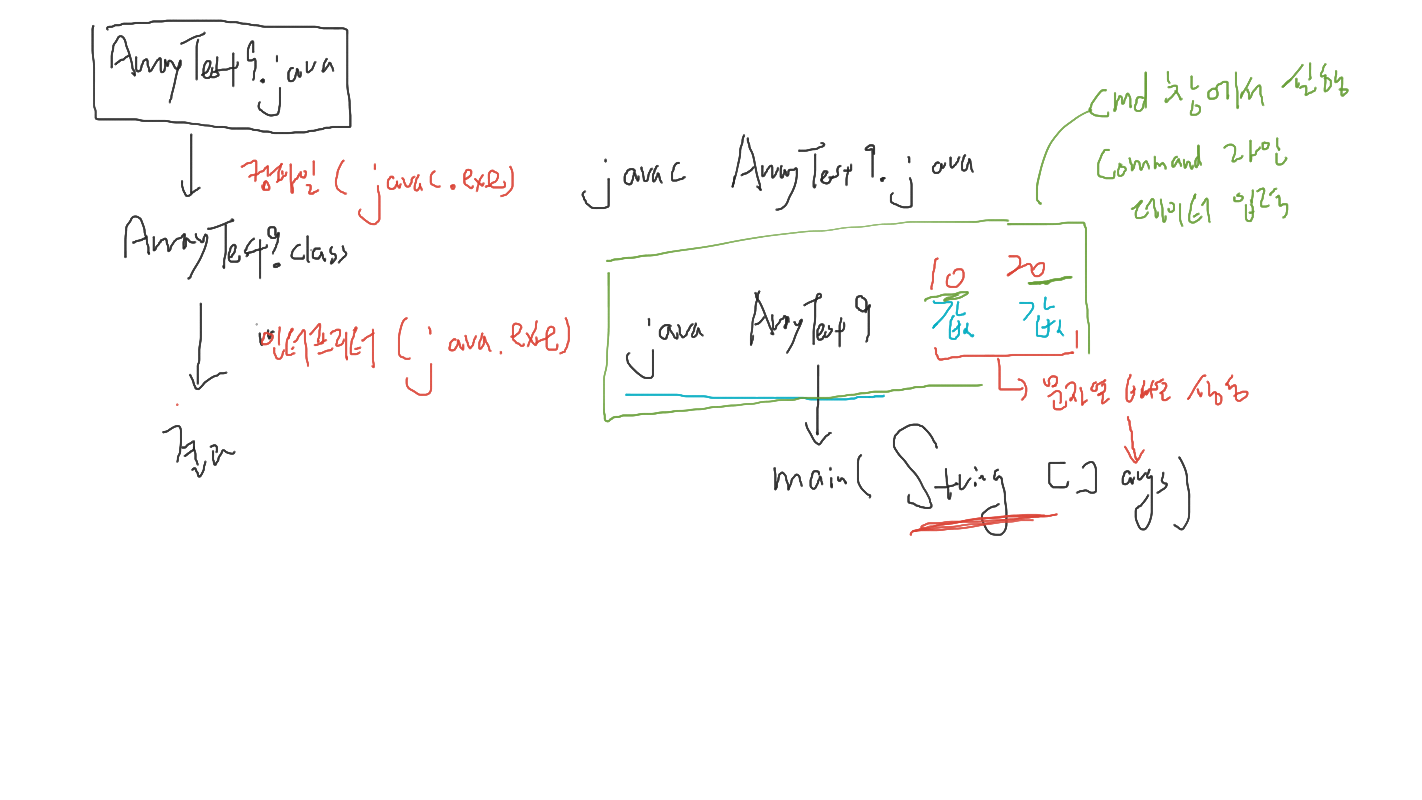 ArrayTest9.java
컴파일 (javac.exe)
ArrayTest9.class
인터프리터 (java.exe)
결과
javac ArrayTest9.java
cmd 창에서 실행
Command 라인
데이터 입력
10 20
java ArrayTest9 값 값
문자열 배열 생성
main(String [] args)